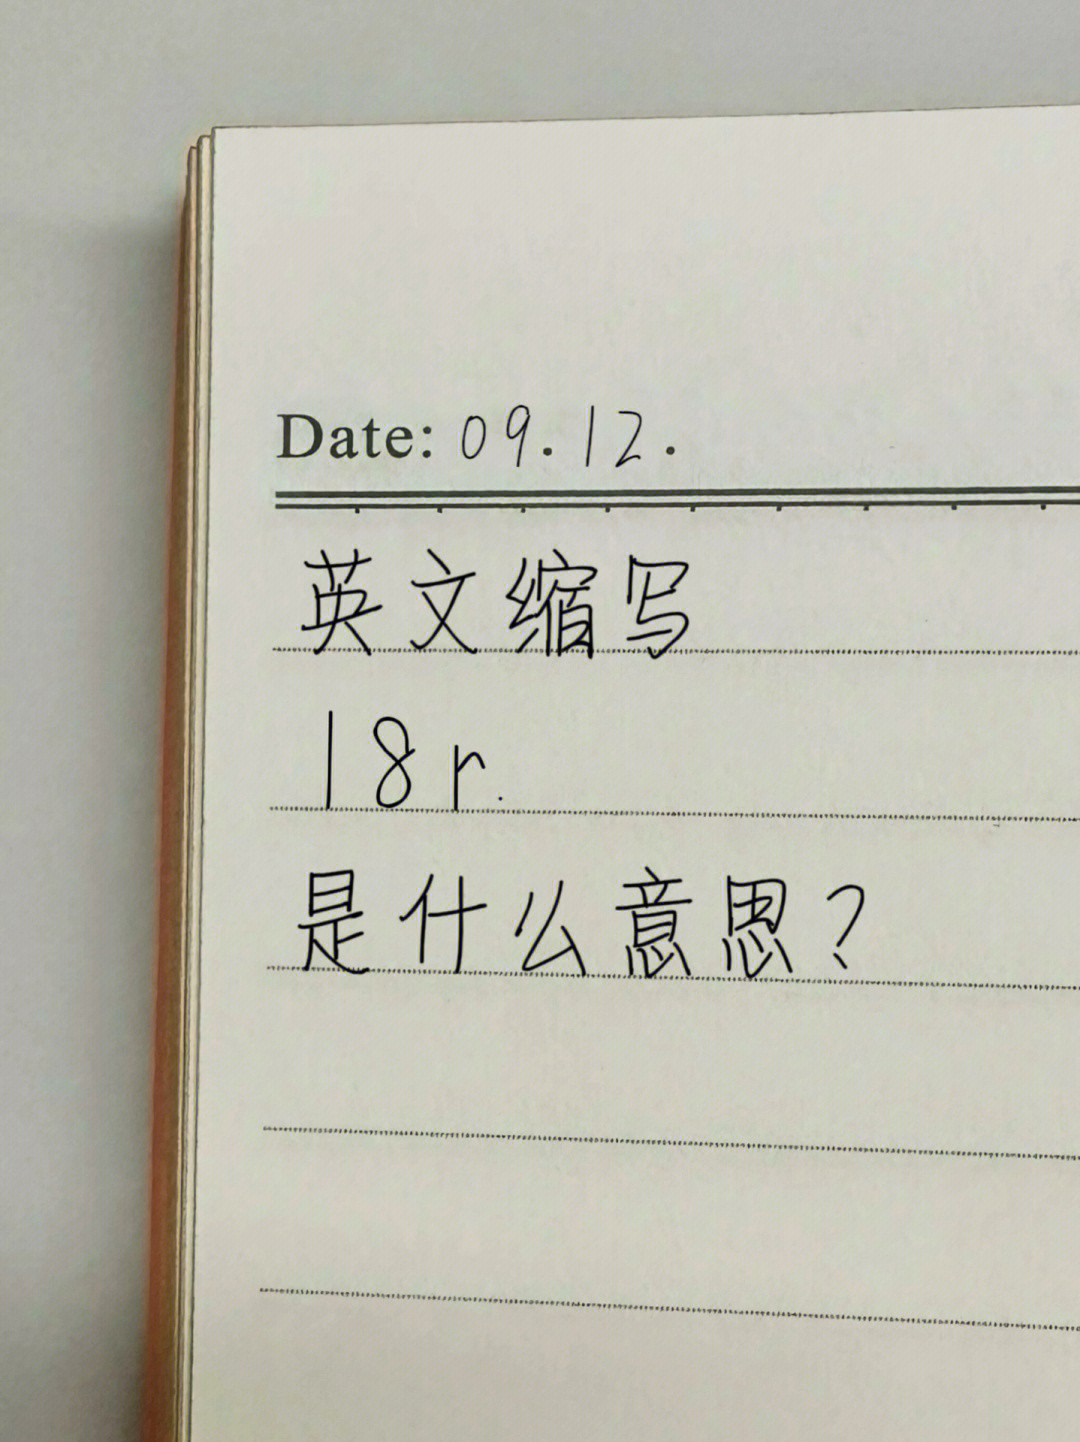 Date: 09.12.
英文缩写
18r.
是什么意思?